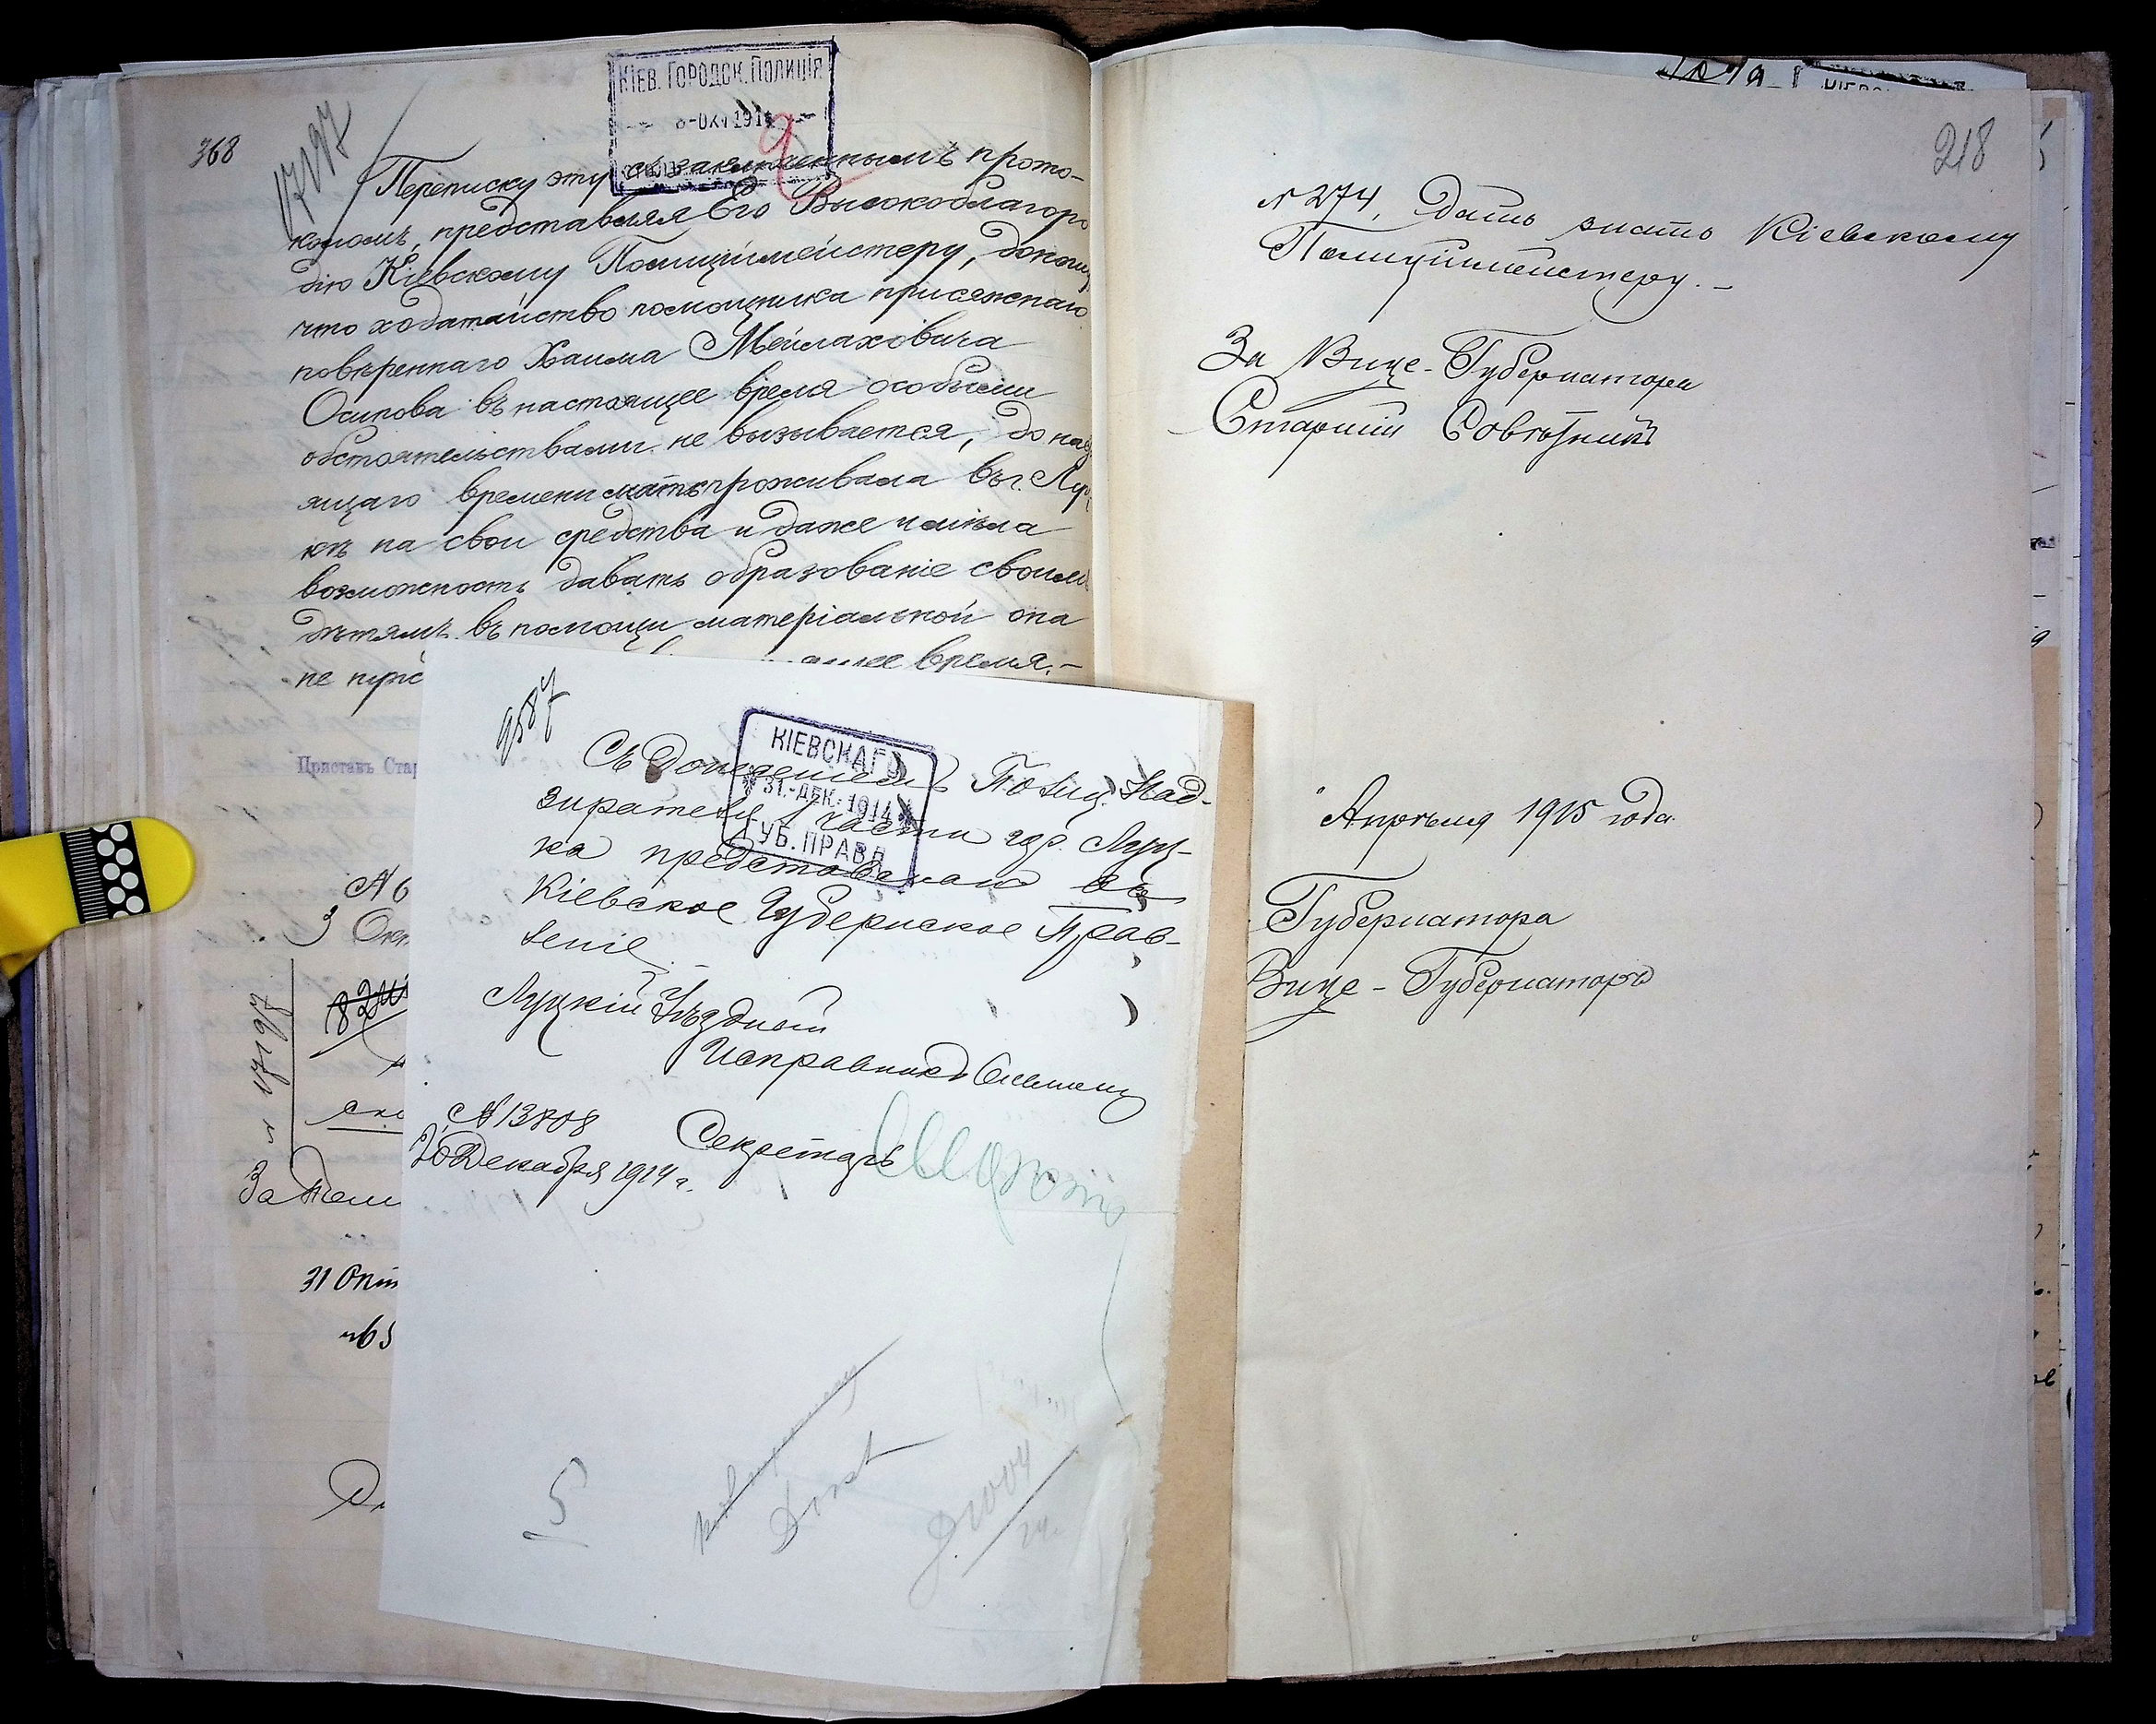 368
17197
КІЕВ. ГОРОДСК. ПОЛИЦІЯ
Переписку эту съ заключеннымъ прото-
коломъ, представляя Его Высокоблагоро
дію Кіевскому Полицiймейстеру, доношу
что ходатайство помощника присяжнаго
повѣреннаго Хаима Мейлаховича
Осипова въ настоящее время особыми
обстоятельствами не вызывается, до наст
ящаго времени мать проживала въ г. Луц
кѣ на свои средства и даже имѣла
возможность давать образованіе своимъ
дѣтямъ въ помощи матеріальной она
не нужд
ащее время.-
Приставъ Стар
3 Окт
17197
31 Окт
9587
КІЕВСКАГО
31.-ДЕК.-1914
ГУБ. ПРАВЛ
Съ донесеніемъ Полиц. Над-
зирателя 1 части гор. Луц-
ка представляю въ
Кіевское Губернское Прав-
леніе.
Луцкій Уѣздный
Исправникъ
№ 13808
Секретарь
20 Декабря 1914 г.
5
218
№ 274. Дать знать Кіевскому
Полиціймейстеру.-
За Вице-Губернатора
Старшій Совѣтникъ
Апрѣля 1915 года
Губернатора
Вице-Губернаторъ